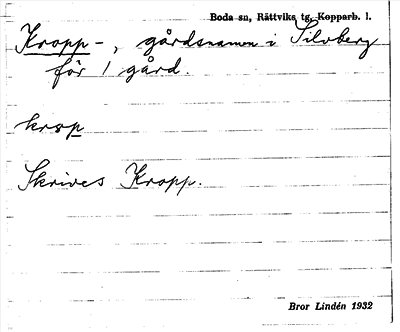 Boda sn, Rättviks tg, Kopparb. l.
Kropp-, gårdsnamn i Silvberg
för 1 gård.
krɔp
Skrives Kropp.
Bror Lindén 1932